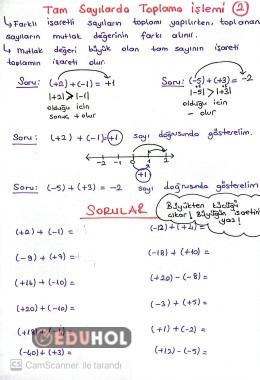 Tam Sayılarda Toplama İşlemi (2)
↳ Farklı işaretli sayıların toplamı yapılırken, toplanan
sayıların mutlak değerinin farkı alınır.
↳ Mutlak değeri büyük olan tam sayının işareti
toplamın işareti olur.
Soru: (+2) + (-1) = +1
|+2| > |-1|
olduğu için
sonuç + olur
Soru: (-5) + (+3) = -2
|-5| > |+3|
olduğu için
- olur
Soru: (+2) + (-1) = +1 sayı doğrusunda gösterelim.
-1 0 1 2
+1
Soru: (-5) + (+3) = -2 sayı doğrusunda gösterelim
SORULAR
Büyükten küçüğü
çıkar! Büyüğün işaretini
yaz!
(+2) + (-1) =
(-12) + (+4) =
(-9) + (+9) =
(-18) + (+10) =
(+14) + (-10) =
(+20) + (-8) =
(+20) + (-10) =
(-3) + (+5) =
(+1) + (-2) =
(-40) + (+3) =
(+12) + (-5) =
EDUHOL
CS CamScanner ile tarandı